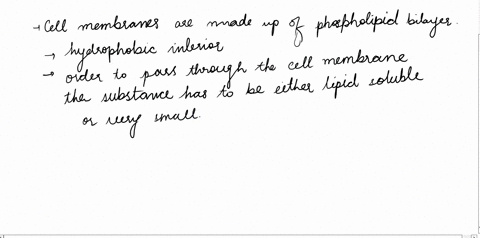 → Cell membranes are made up of phospholipid bilayer.
→ hydrophobic interior
→ order to pass through the cell membrane
the substance has to be either lipid soluble
or very small.